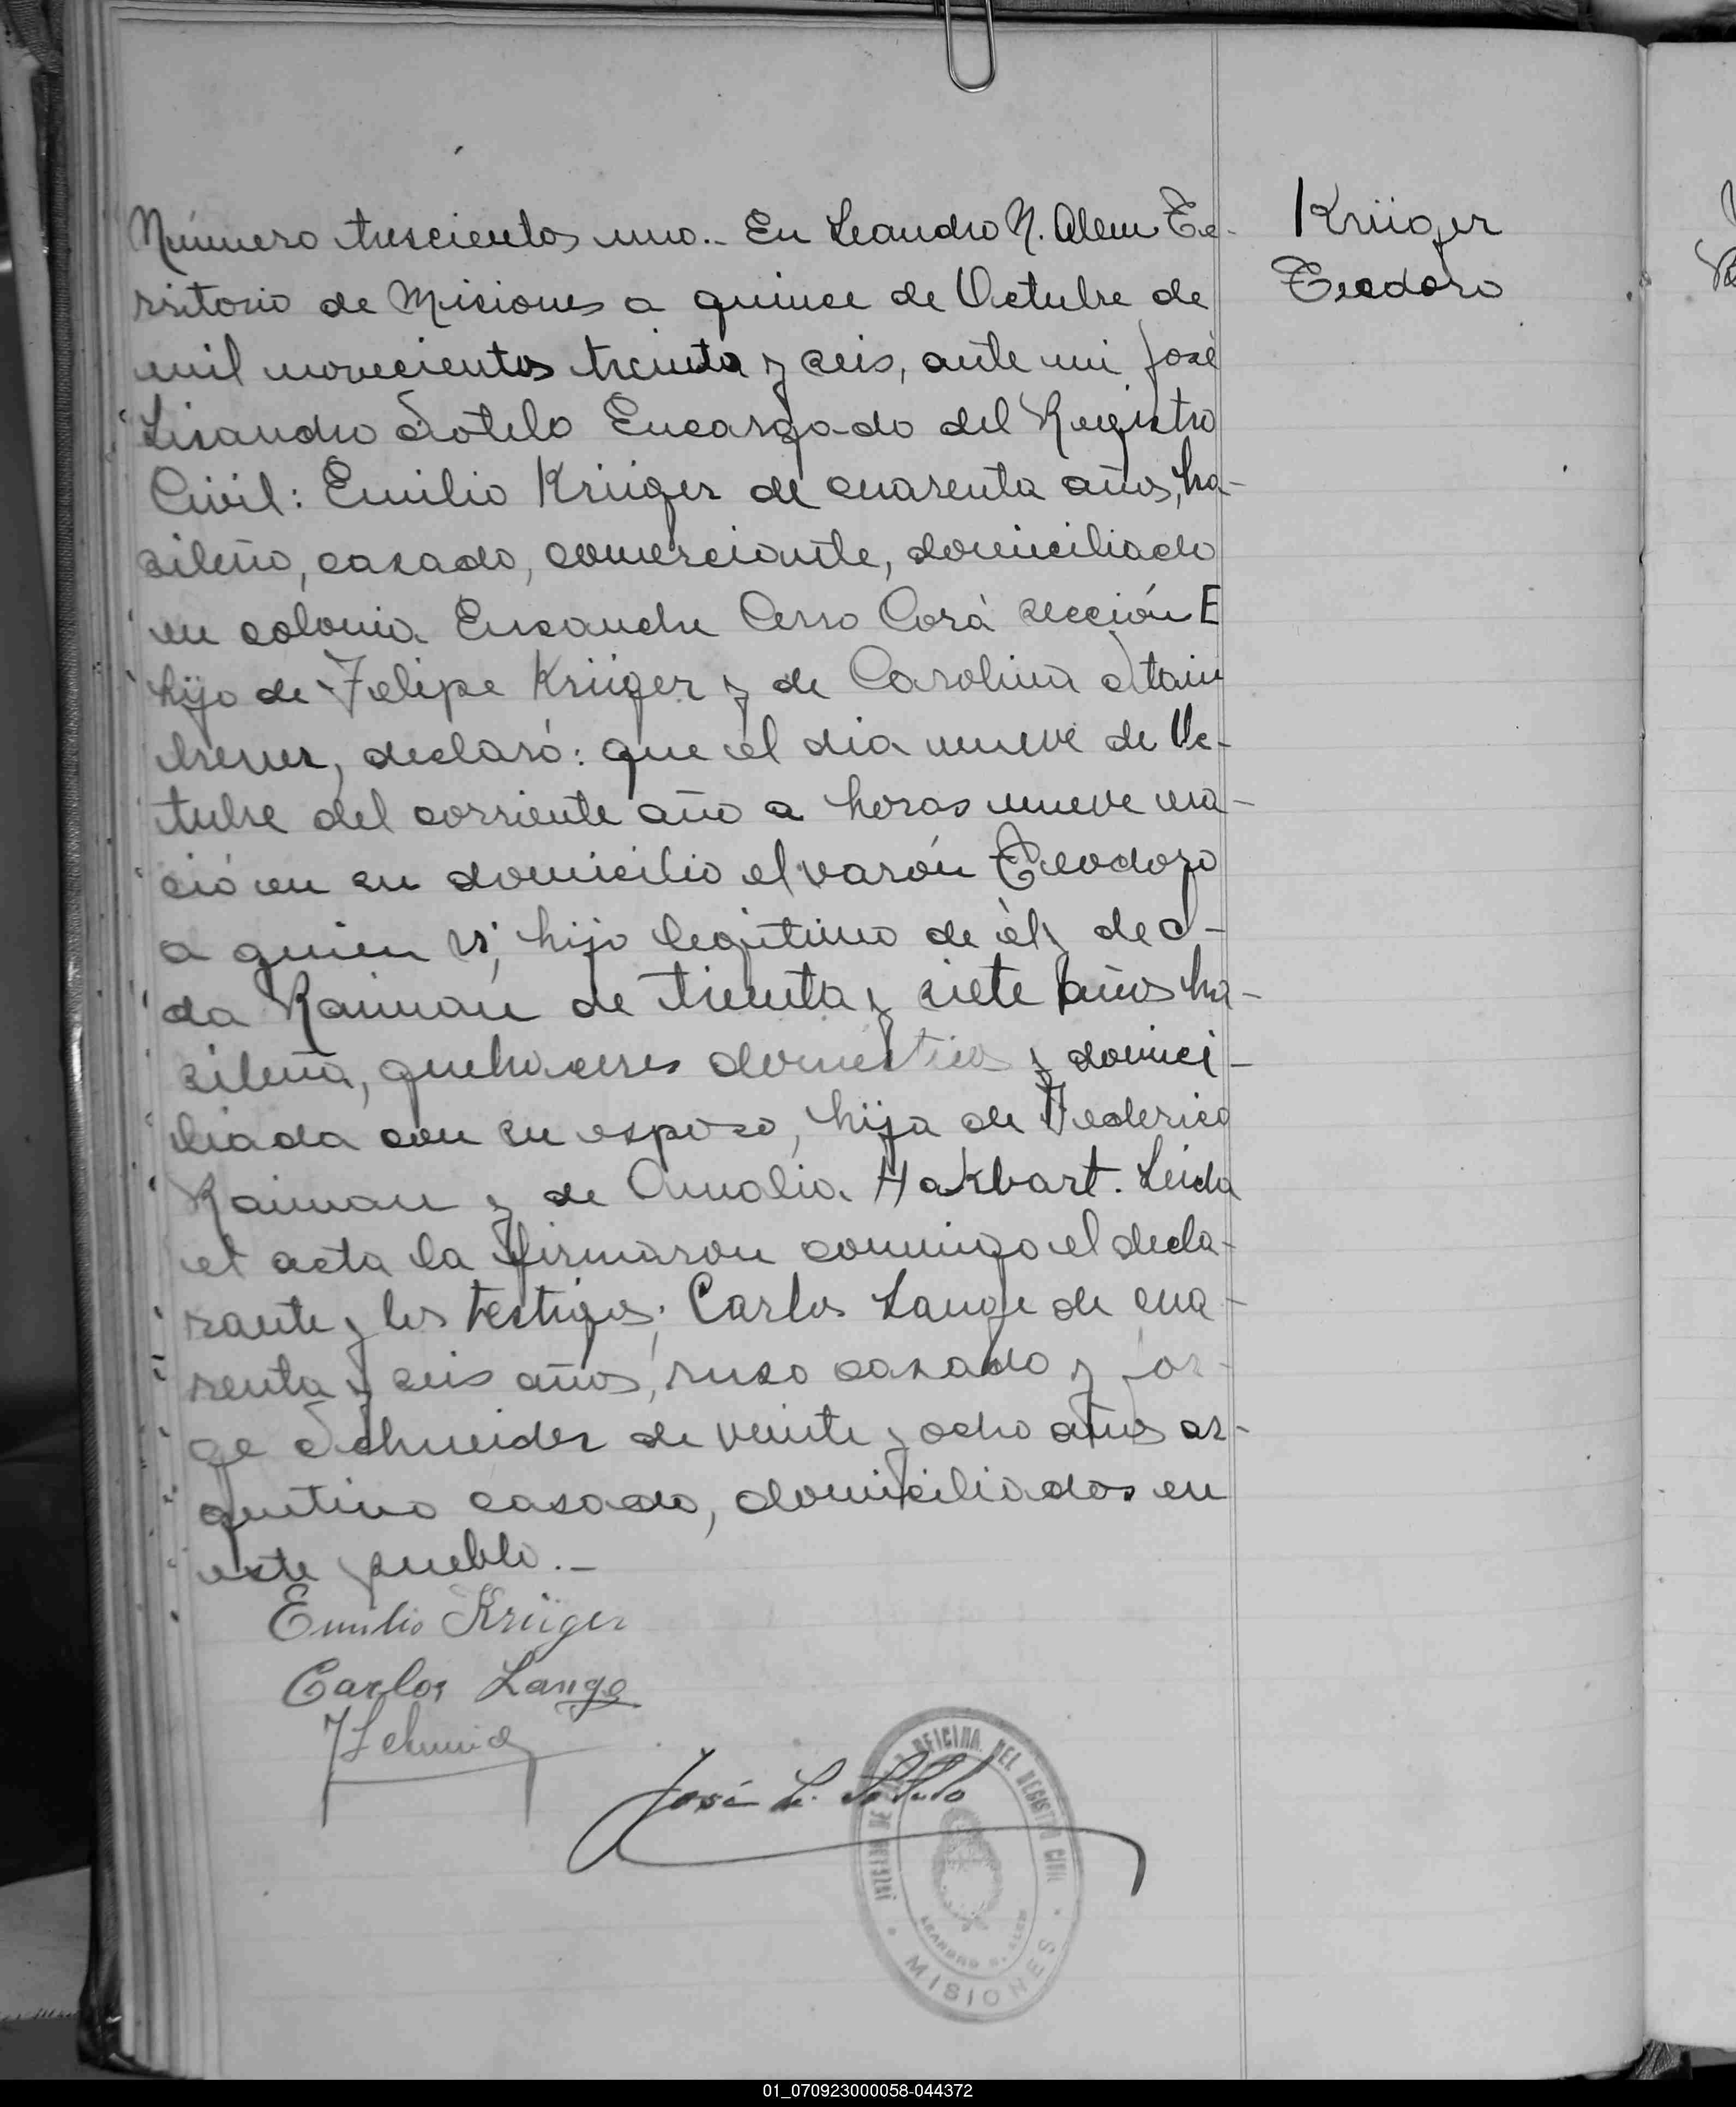 Número trescientos uno.- En Leandro N. Alem Te-
rritorio de Misiones a quince de Octubre de
mil novecientos treinta y seis, ante mi José
Lisandro Sotelo Encargado del Registro
Civil: Emilio Krüger de cuarenta años, bra-
sileño, casado, comerciante, domiciliado
en colonia Ensanche Cerro Corá sección E
hijo de Felipe Krüger y de Carolina Stain
brener, declaró: que el dia nueve de Oc-
tubre del corriente año a horas nueve na-
ció en su domicilio el varón Teodoro
a quien vi, hijo legitimo de él y de A-
da Raiman de treinta y siete años bra-
sileña, quehaceres domésticos y domici-
liada con su esposo, hija de Federico
Raiman y de Amalia Hakbart. Leida
el acta la firmaron conmigo el decla-
rante y los testigos; Carlos Lange de cua-
renta y seis años, ruso casado y Jor-
ge Schneider de veinte y ocho años ar-
gentino casado, domiciliados en
este pueblo.-
Krüger
Teodoro
Emilio Krüger
Carlos Lange
José L. Sotelo
OFICINA DEL REGISTRO CIVIL
LEANDRO N. ALEM
MISIONES
01_070923000058-044372